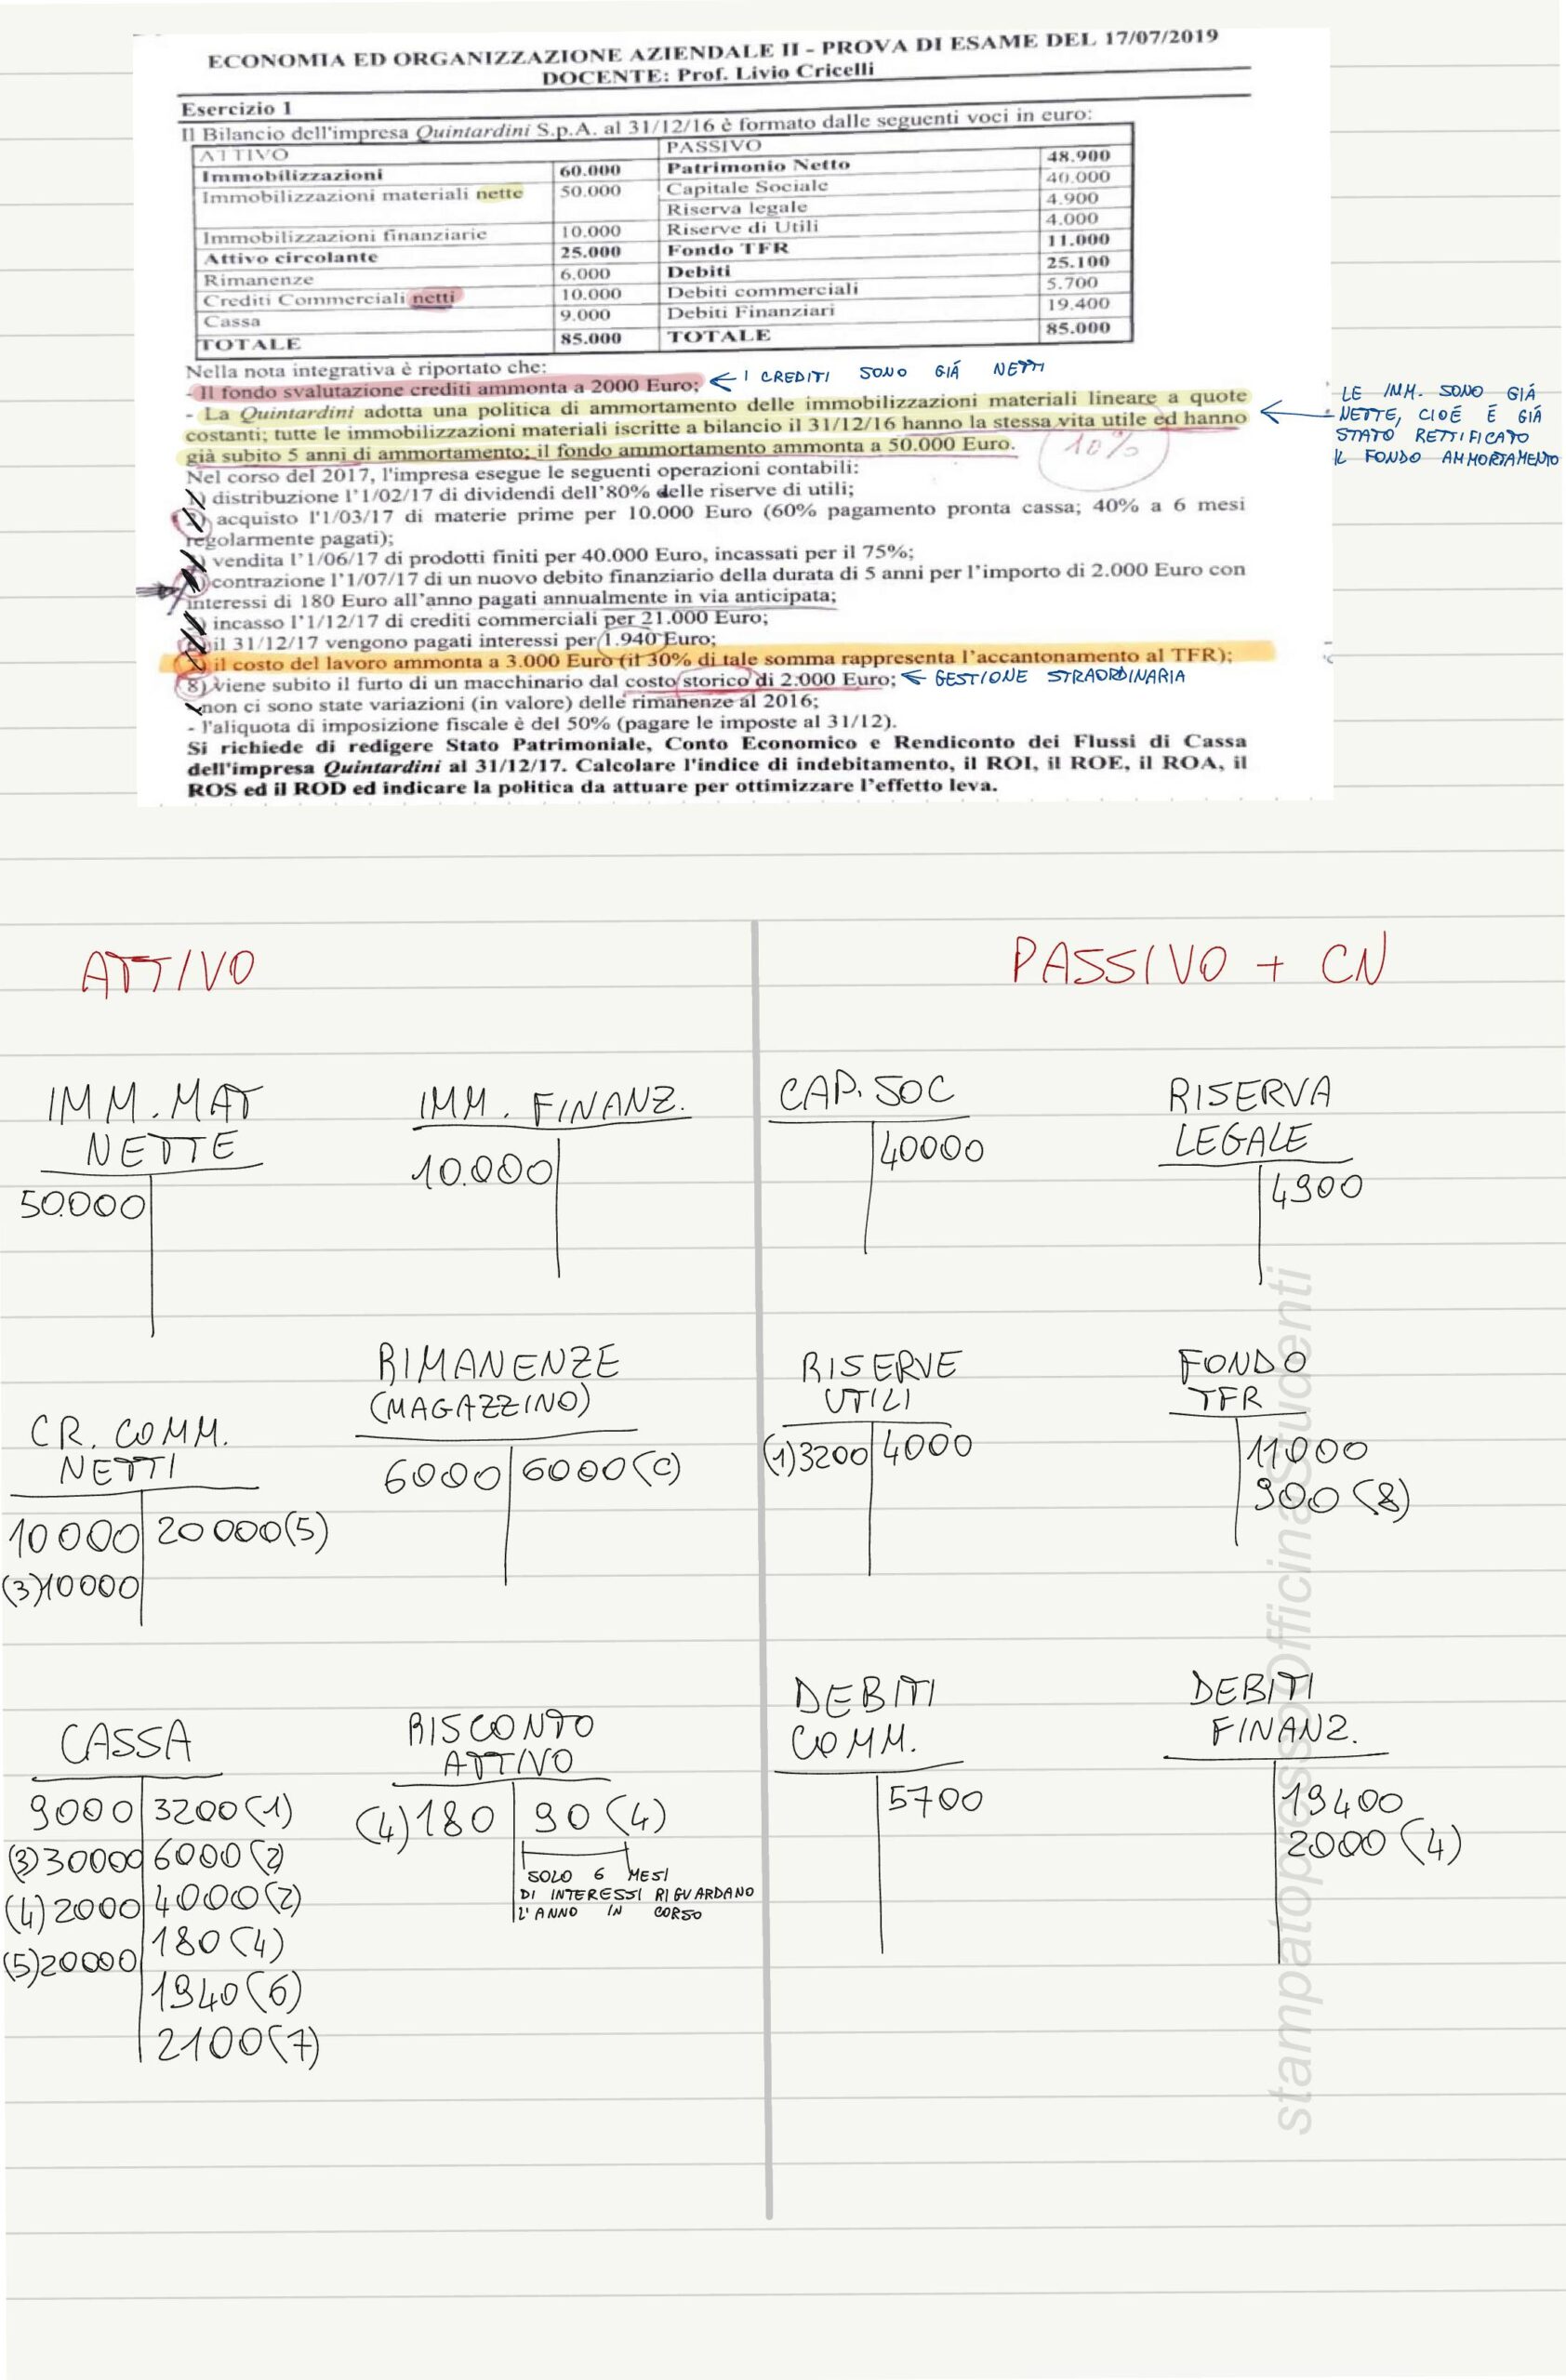 ECONOMIA ED ORGANIZZAZIONE AZIENDALE II - PROVA DI ESAME DEL 17/07/2019
DOCENTE: Prof. Livio Cricelli
Esercizio 1
Il Bilancio dell'impresa Quintardini S.p.A. al 31/12/16 è formato dalle seguenti voci in euro:
ATTIVO PASSIVO
Immobilizzazioni 60.000 Patrimonio Netto 48.900
Immobilizzazioni materiali nette 50.000 Capitale Sociale 40.000
Riserva legale 4.900
Immobilizzazioni finanziarie 10.000 Riserve di Utili 4.000
Attivo circolante 25.000 Fondo TFR 11.000
Rimanenze 6.000 Debiti 25.100
Crediti Commerciali netti 10.000 Debiti commerciali 5.700
Cassa 9.000 Debiti Finanziari 19.400
TOTALE 85.000 TOTALE 85.000
Nella nota integrativa è riportato che:
- Il fondo svalutazione crediti ammonta a 2000 Euro; I CREDITI SONO GIÁ NETTI
- La Quintardini adotta una politica di ammortamento delle immobilizzazioni materiali lineare a quote
costanti; tutte le immobilizzazioni materiali iscritte a bilancio il 31/12/16 hanno la stessa vita utile ed hanno
già subito 5 anni di ammortamento; il fondo ammortamento ammonta a 50.000 Euro.
10%
LE IMM. SONO GIÁ
NETTE, CIOÉ É GIÁ
STATO RETTIFICATO
IL FONDO AMMORTAMENTO
Nel corso del 2017, l'impresa esegue le seguenti operazioni contabili:
1) distribuzione l'1/02/17 di dividendi dell'80% delle riserve di utili;
2) acquisto l'1/03/17 di materie prime per 10.000 Euro (60% pagamento pronta cassa; 40% a 6 mesi
regolarmente pagati);
3) vendita l'1/06/17 di prodotti finiti per 40.000 Euro, incassati per il 75%;
4) contrazione l'1/07/17 di un nuovo debito finanziario della durata di 5 anni per l'importo di 2.000 Euro con
interessi di 180 Euro all'anno pagati annualmente in via anticipata;
5) incasso l'1/12/17 di crediti commerciali per 21.000 Euro;
6) il 31/12/17 vengono pagati interessi per 1.940 Euro;
7) il costo del lavoro ammonta a 3.000 Euro (il 30% di tale somma rappresenta l'accantonamento al TFR);
8) viene subito il furto di un macchinario dal costo storico di 2.000 Euro; GESTIONE STRAORDINARIA
- non ci sono state variazioni (in valore) delle rimanenze al 2016;
- l'aliquota di imposizione fiscale è del 50% (pagare le imposte al 31/12).
Si richiede di redigere Stato Patrimoniale, Conto Economico e Rendiconto dei Flussi di Cassa
dell'impresa Quintardini al 31/12/17. Calcolare l'indice di indebitamento, il ROI, il ROE, il ROA, il
ROS ed il ROD ed indicare la politica da attuare per ottimizzare l'effetto leva.
ATTIVO
PASSIVO + CN
IMM. MAT
NETTE
50.000
IMM. FINANZ.
10.000
CAP. SOC
40000
RISERVA
LEGALE
4900
CR. COMM.
NETTI
10000 20000(5)
(3)10000
RIMANENZE
(MAGAZZINO)
6000 6000(C)
RISERVE
UTILI
(1)3200 4000
FONDO
TFR
11000
900(8)
CASSA
9000 3200(1)
(3)30000 6000(2)
(4)2000 4000(2)
(5)20000 180(4)
1940(6)
2100(7)
RISCONTO
ATTIVO
(4)180 90(4)
SOLO 6 MESI
DI INTERESSI RIGUARDANO
L'ANNO IN CORSO
DEBITI
COMM.
5700
DEBITI
FINANZ.
19400
2000(4)
stampatopressoOfficinaStudenti